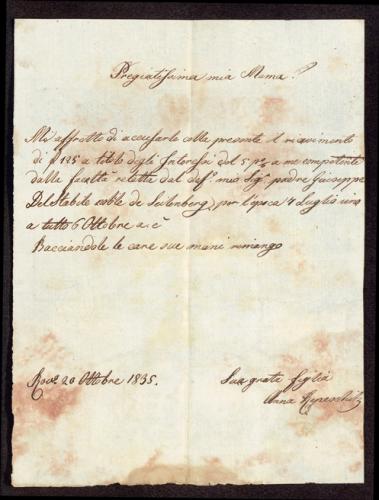 Pregiatissima mia Mama!
Mi affretto di accusarle colla presente il ricevimento
di f 125 a titolo degli Interessi del 5 p% a me competente
dalla facoltà relitta dal def.º mio Sig.r padre Giuseppe
Del nobile de per l'epoca 7 Luglio sino
a tutto 6 Ottobre a.c.
Bacciandole le care sue mani rimango
20 Ottobre 1835.
Sua grata figlia
Anna